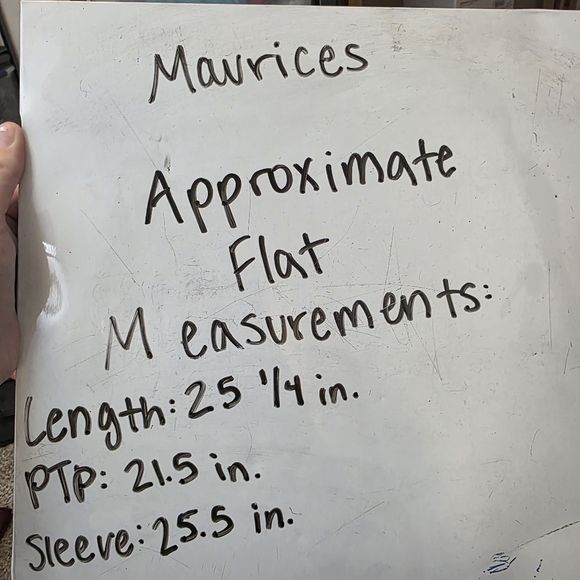 Maurices
Approximate
Flat
Measurements:
Length: 25 1/4 in.
PTP: 21.5 in.
Sleeve: 25.5 in.